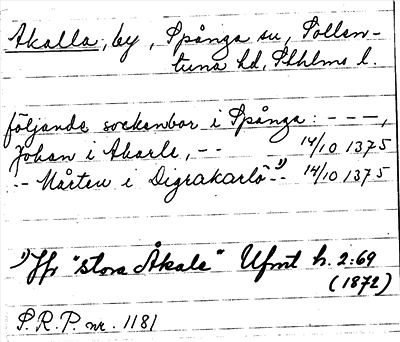 Akalla, by, Spånga sn, Sollen-
tuna hd, Sthlms l.
följande sockenbor i Spånga: - - -,
Johan i Akarle, - - 14/10 1375
- - Mårten i Digrakarlö 1) - - 14/10 1375
1) Jfr "Stora Åkale" Ufmt h. 2:69
(1872)
S.R.P. nr. 1181